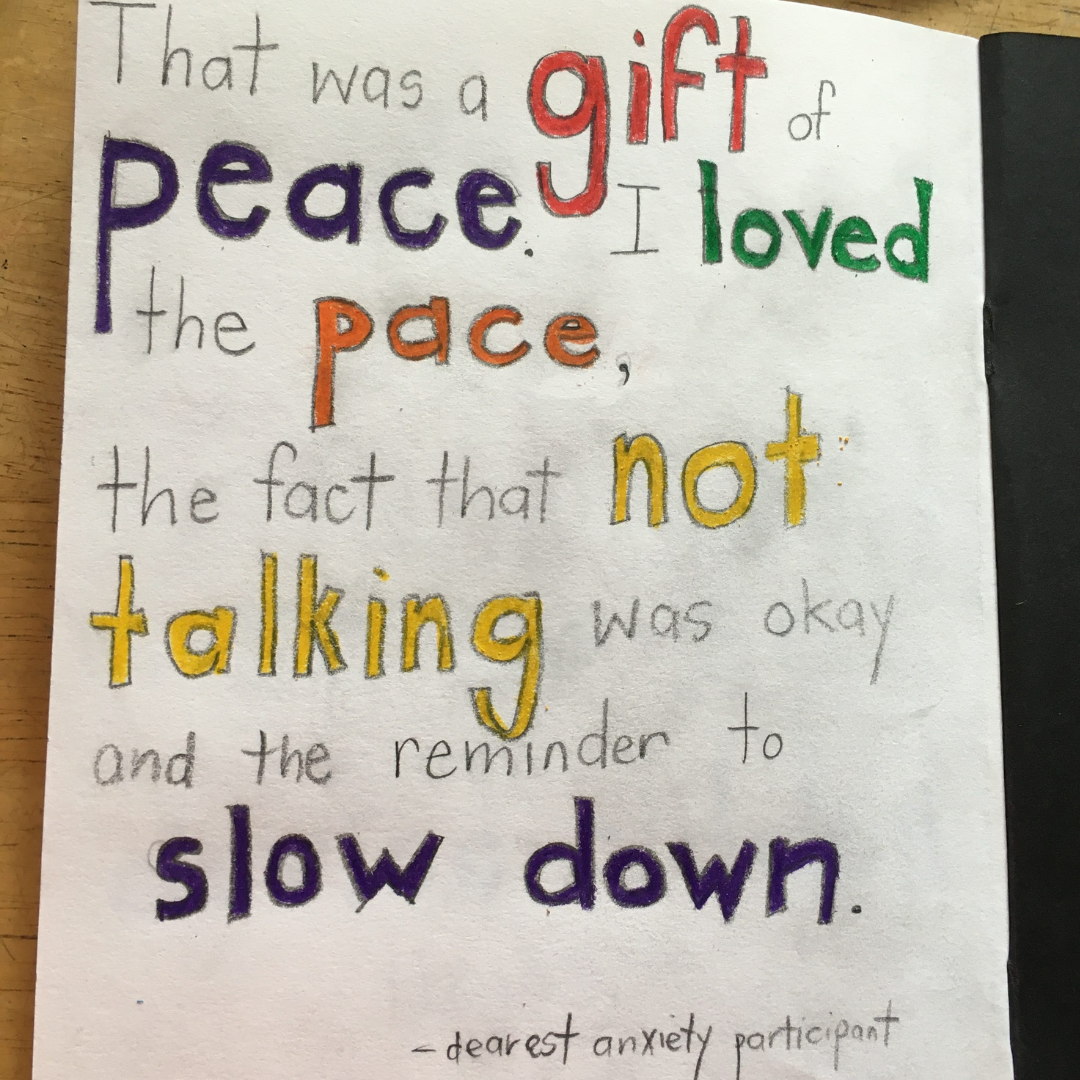 That was a gift of
peace. I loved
the pace,
the fact that not
talking was okay
and the reminder to
slow down.
- dearest anxiety participant